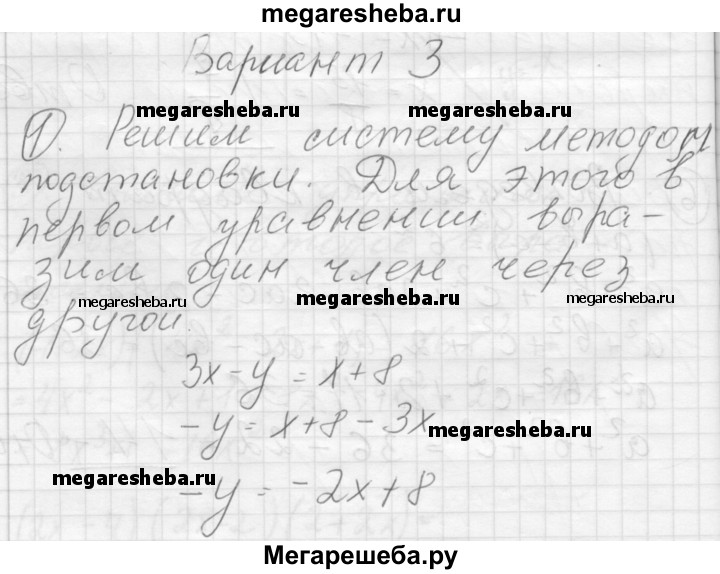 megaresheba.ru
Вариант 3
megaresheba.ru megaresheba.ru
1). Решим систему методом
подстановки. Для этого в
первом уравнении выра-
зим один член через
megaresheba.ru megaresheba.ru megaresheba.ru
другой.
3x-y=x+8
-y=x+8-3x
megaresheba.ru
megaresheba.ru
-y=-2x+8
Мегарешеба.ру